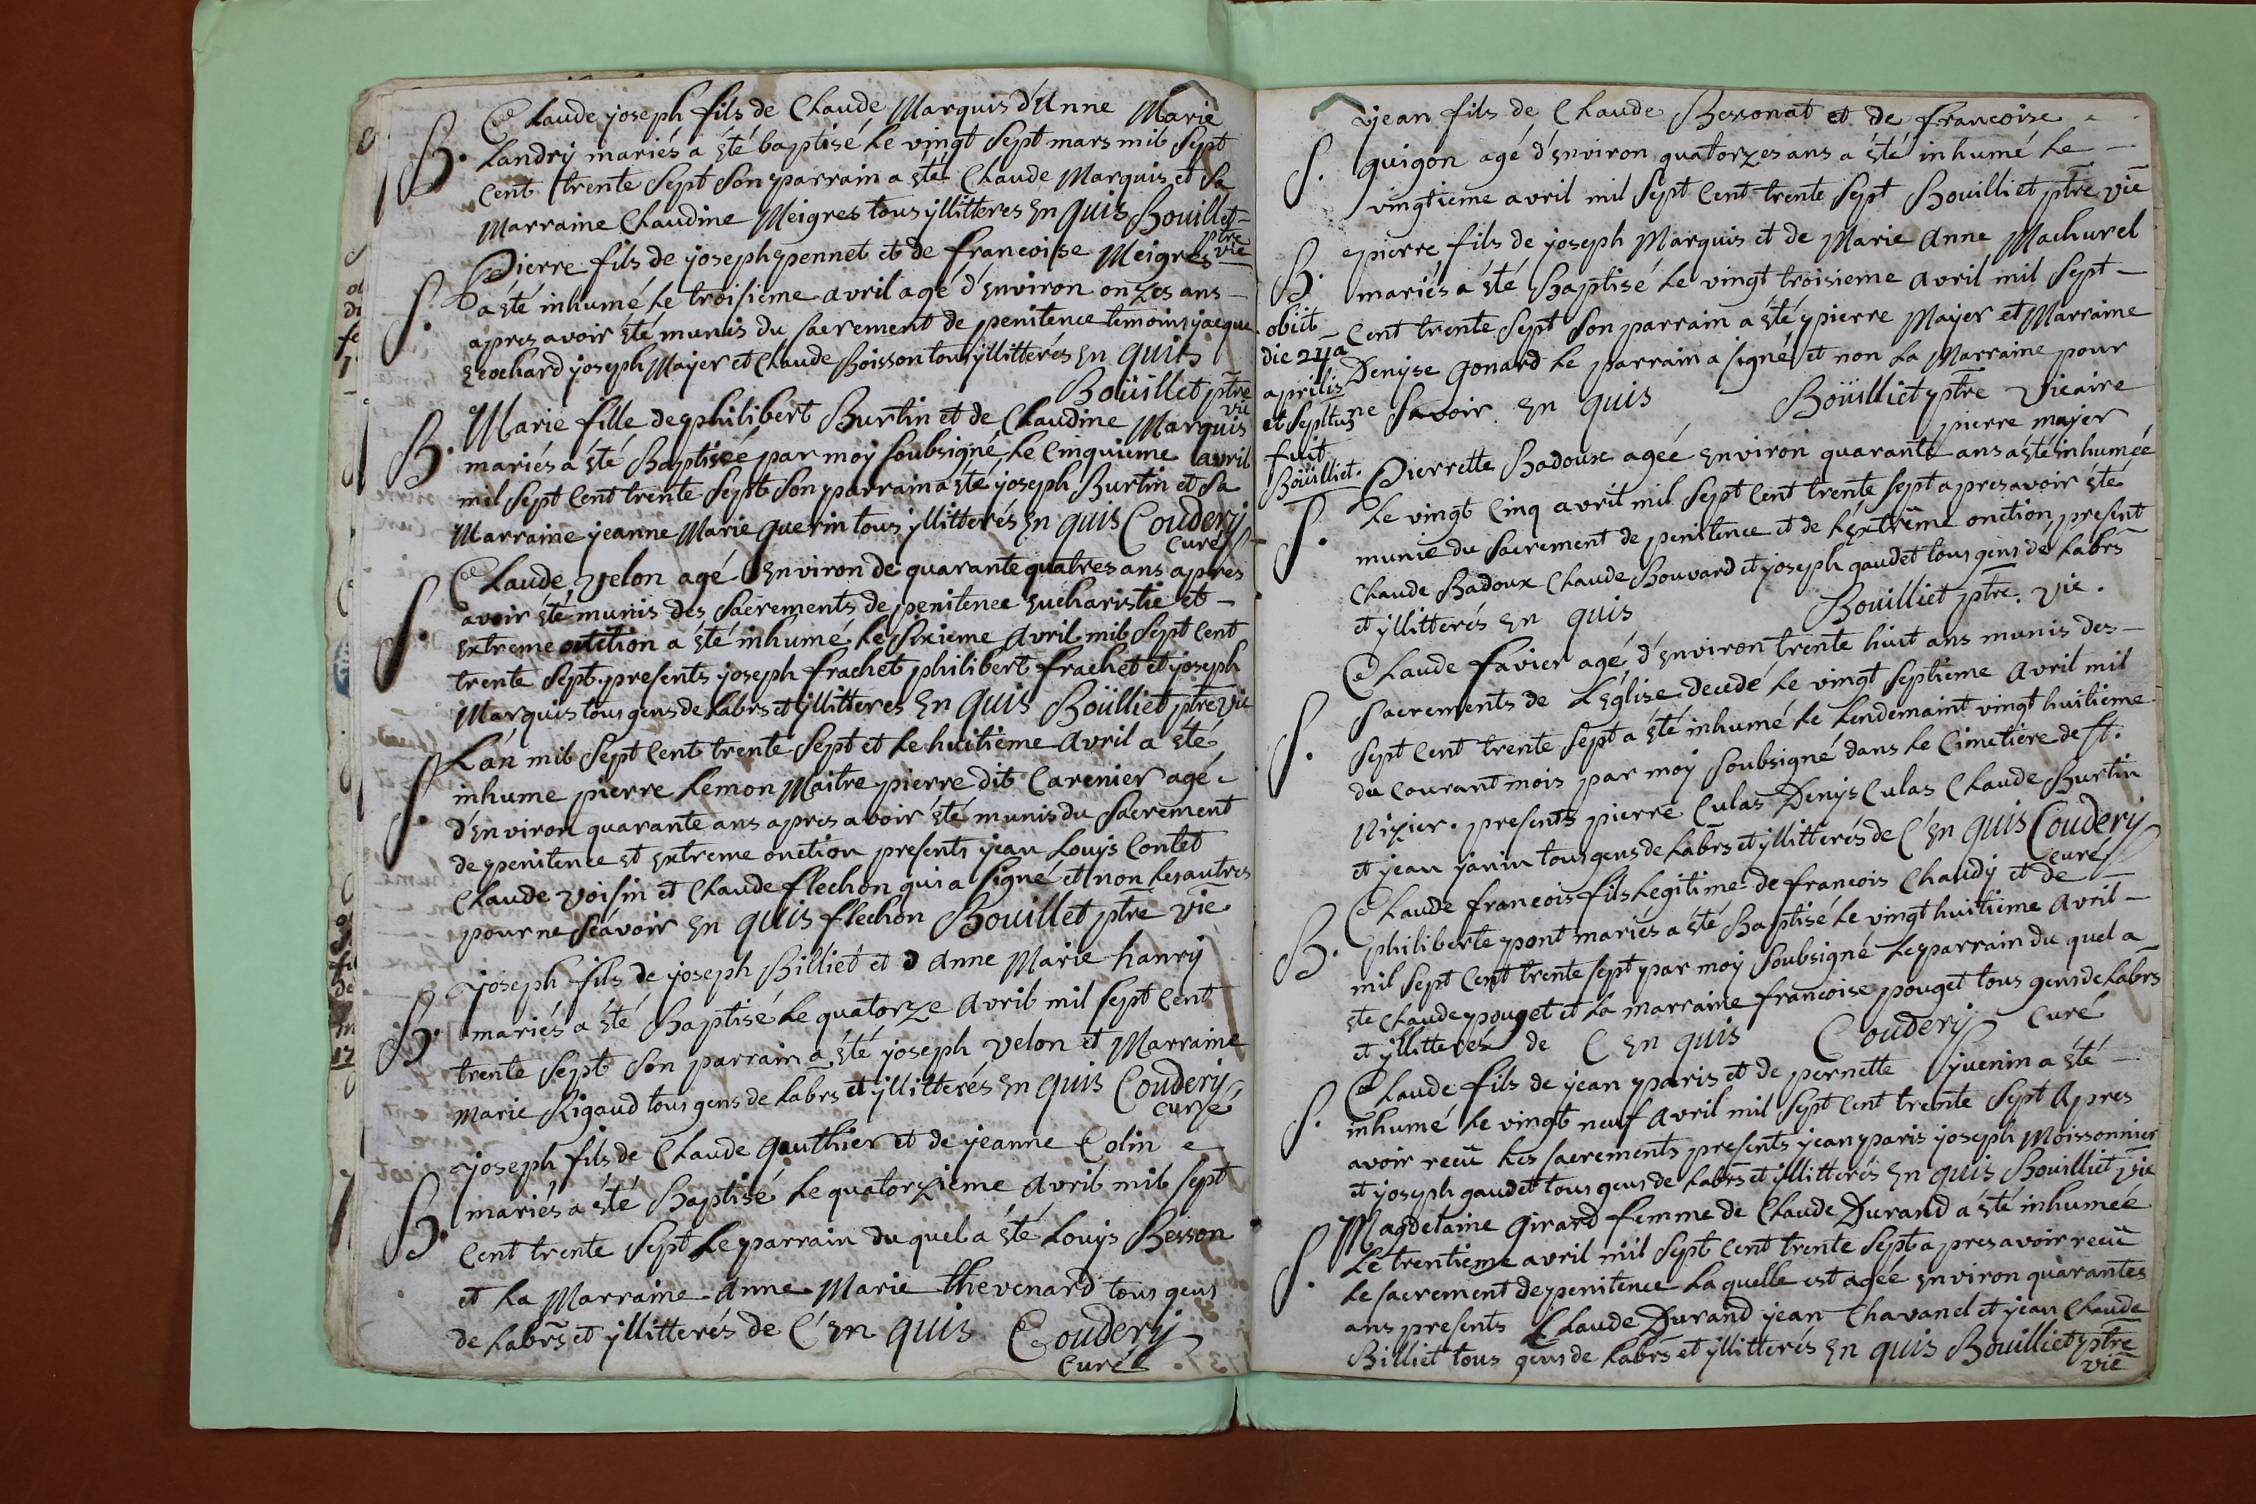 Claude joseph fils de Claude Marquis d'Anne Marie
B. Landry mariés a été baptisé le vingt sept mars mil sept
cent trente sept son parrain a été Claude Marquis et sa
Marraine Claudine Meigres tous yllitteres En quis Bouillet
ptre vie
Pierre fils de joseph pennet et de francoise Meigres
S. a été inhumé le troisieme avril agé d'Environ onzes ans
apres avoir été munis du sacrement de penitence temoins jacque
Brochard joseph Mayer et Claude Boisson tous yllitterés En quis
Boüillet ptre
vie
Marie fille de philibert Burtin et de Claudine Marquis
B. mariés a été Baptiseé par moy soubsigné le Cinquieme avril
mil sept Cent trente sept son parrain a été joseph Burtin et sa
Marraine jeanne Marie guerin tous yllitterés En quis Coudery
curé
Claude velon agé Environ de quarante quatres ans apres
S. avoir été munis des sacrements de penitence Eucharistie et
Extreme onction a été inhumé le sixieme avril mil sept cent
trente sept presents joseph frachet philibert frachet et joseph
Marquis tous gens de labrs et yllitteres En quis Boüilliet ptre vie
L'an mil sept Cent trente sept et le huitieme avril a été
S. inhume pierre Lemon Maitre pierre dit Carenier agé
d'Environ quarante ans apres avoir été munis du sacrement
de penitence et Extreme onction presents jean Louys Contet
Claude voisin et Claude flechon qui a signé et non les autres
pour ne sçavoir En quis flechon Bouillet ptre vie
joseph fils de joseph Billiet et d anne Marie hanry
B. mariés a été Baptisé le quatorze avril mil sept cent
trente sept son parrain a été joseph velon et Marraine
marie Rigaud tous gens de labrs et yllitterés En quis Coudery
curé
joseph fils de Claude Gauthier et de jeanne Colin
B. mariés a été Baptisé le quatorzieme avril mil sept
Cent trente sept le parrain du quel a été Louys Besson
et la Marraine anne Marie thevenard tous gens
de labrs et yllitterés de C' En quis Coudery
curé
jean fils de Claude Bessonat et de francoise
S. guigon agé d'Environ quatorzes ans a été inhumé le
vingtieme avril mil sept Cent trente sept Bouilliet ptre vie
pierre fils de joseph Marquis et de Marie Anne Machurel
B. mariés a été Baptisé le vingt troisieme avril mil sept
Cent trente sept son parrain a été pierre Mayer et Marraine
Denyse Gonard le parrain a signé et non la Marraine pour
ne savoir En quis Boüilliet ptre vicaire
pierre majer
obiit
die 24a
aprilis
et sepltus
fuit
Boüilliet.
Pierrette Badoux ageé Environ quarante ans a été inhumée
S. le vingt Cinq avril mil sept Cent trente sept apres avoir été
munie du sacrement de penitence et de l'Extrême onction present
Claude Badoux Claude Bouvard et joseph gaudet tous gens de labrs
et yllitterés En quis Bouilliet ptre. vie.
Claude favier agé d'Environ trente huit ans munis des
S. sacrements de L'Eglise decedé le vingt septieme avril mil
sept cent trente sept a été inhumé le lendemaint vingt huitieme
du courant mois par moy soubsigné dans le Cimetiere de st.
Nizier. presents pierre Culas Denys Culas Claude Burtin
et jean janin tous gens de labrs et yllitterés de C' En quis Coudery
curé
Claude francois fils Legitime de francois Chaudy et de
B. philiberte pont mariés a été Baptisé le vingt huitieme avril
mil sept Cent trente sept par moy soubsigné le parrain du quel a
ete Claude pouget et la marraine francoise pouget tous gens de labrs
et yllitterés de C En quis Coudery curé
Claude fils de jean paris et de pernette juenin a été
S. inhumé le vingt neuf avril mil sept cent trente sept apres
avoir reçu les sacrements presents jean paris joseph Moissonnier
et joseph gaudet tous gens de labrs et yllitterés En quis Bouilliet vie
Magdelaine Girard femme de Claude Durand a été inhumeé
S. Le trentieme avril mil sept cent trente sept apres avoir reçu
le sacrement de penitence laquelle est ageé Environ quarantes
ans presents Claude Durand jean Chavanel et jean Claude
Billiet tous gens de labrs et yllitterés En quis Bouilliet ptre
vie